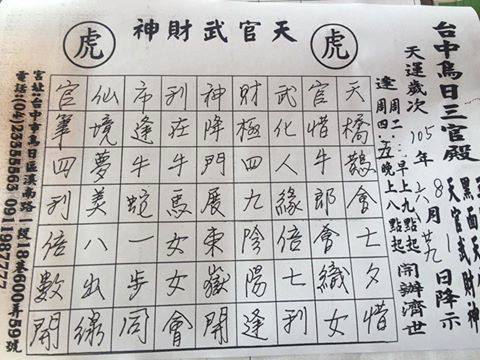 台中烏日三官殿
黑面天
天官武財神
天運歲次 105年 六月廿九日降示
8/1
逢周二：早上九點起
周四、五晚上八點起
開辦濟世
虎
天官武財神
虎
天橋鵲會士夕惜
官惜牛郎會織女
武化人緣倍七利
財極四九陰陽逢
神降門展東嶽開
利在牛馬女女會
市逢牛蛇一步同
仙境夢美八出繡
官筆四利倍數開
宮址:台中市烏日區溪南路一段18巷600弄59號
電話:(04)23355563 0911987777